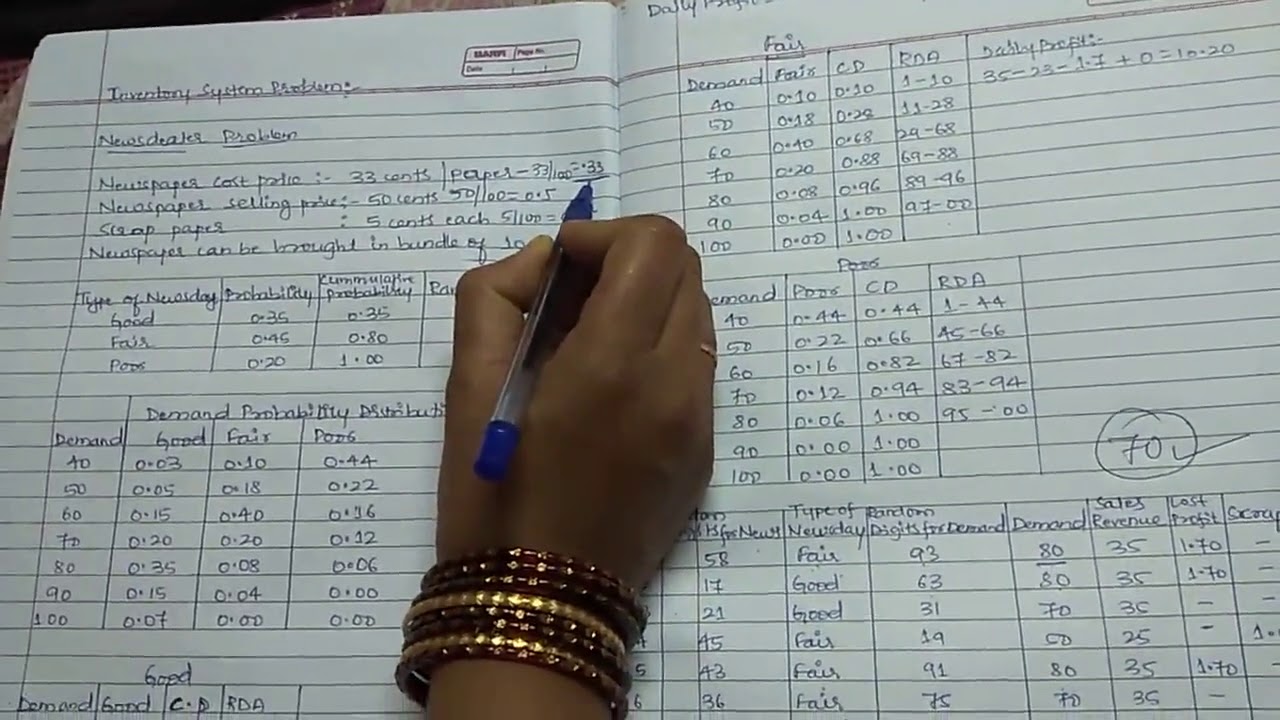 Inventory System Problem:-
Newsdealer Problem
Newspaper cost price :- 33 cents / paper - 33/100 = .33
Newspaper selling price:- 50 cents 50/100 = 0.5
Scrap paper : 5 cents each 5/100 =
Newspaper can be brought in bundle of 10
Type of Newsday Probability Cummulative probability
Good 0.35 0.35
Fair 0.45 0.80
Poor 0.20 1.00
Demand Probability
Demand Good Fair Poor
40 0.03 0.10 0.44
50 0.05 0.18 0.22
60 0.15 0.40 0.16
70 0.20 0.20 0.12
80 0.35 0.08 0.06
90 0.15 0.04 0.00
100 0.07 0.00 0.00
Good
Demand Good C.D RDA
Page No.
Date
Daily
Fair
Demand Fair CD RDA
40 0.10 0.10 1-10
50 0.18 0.28 11-28
60 0.40 0.68 29-68
70 0.20 0.88 69-88
80 0.08 0.96 89-96
90 0.04 1.00 97-00
100 0.00 1.00
Daily Profit:-
35-23-1.7+0=10.20
Poor
Poor CD RDA
40 0.44 0.44 1-44
50 0.22 0.66 45-66
60 0.16 0.82 67-82
70 0.12 0.94 83-94
80 0.06 1.00 95-00
90 0.00 1.00
100 0.00 1.00
70
Type of Newsday Random Digits for Demand Demand Sales Revenue Lost Profit
58 Fair 93 80 35 1.70 -
17 Good 63 80 35 1.70 -
21 Good 31 70 35 - -
45 Fair 19 50 25 -
43 Fair 91 80 35 1.70 -
6 36 Fair 75 70 35 -